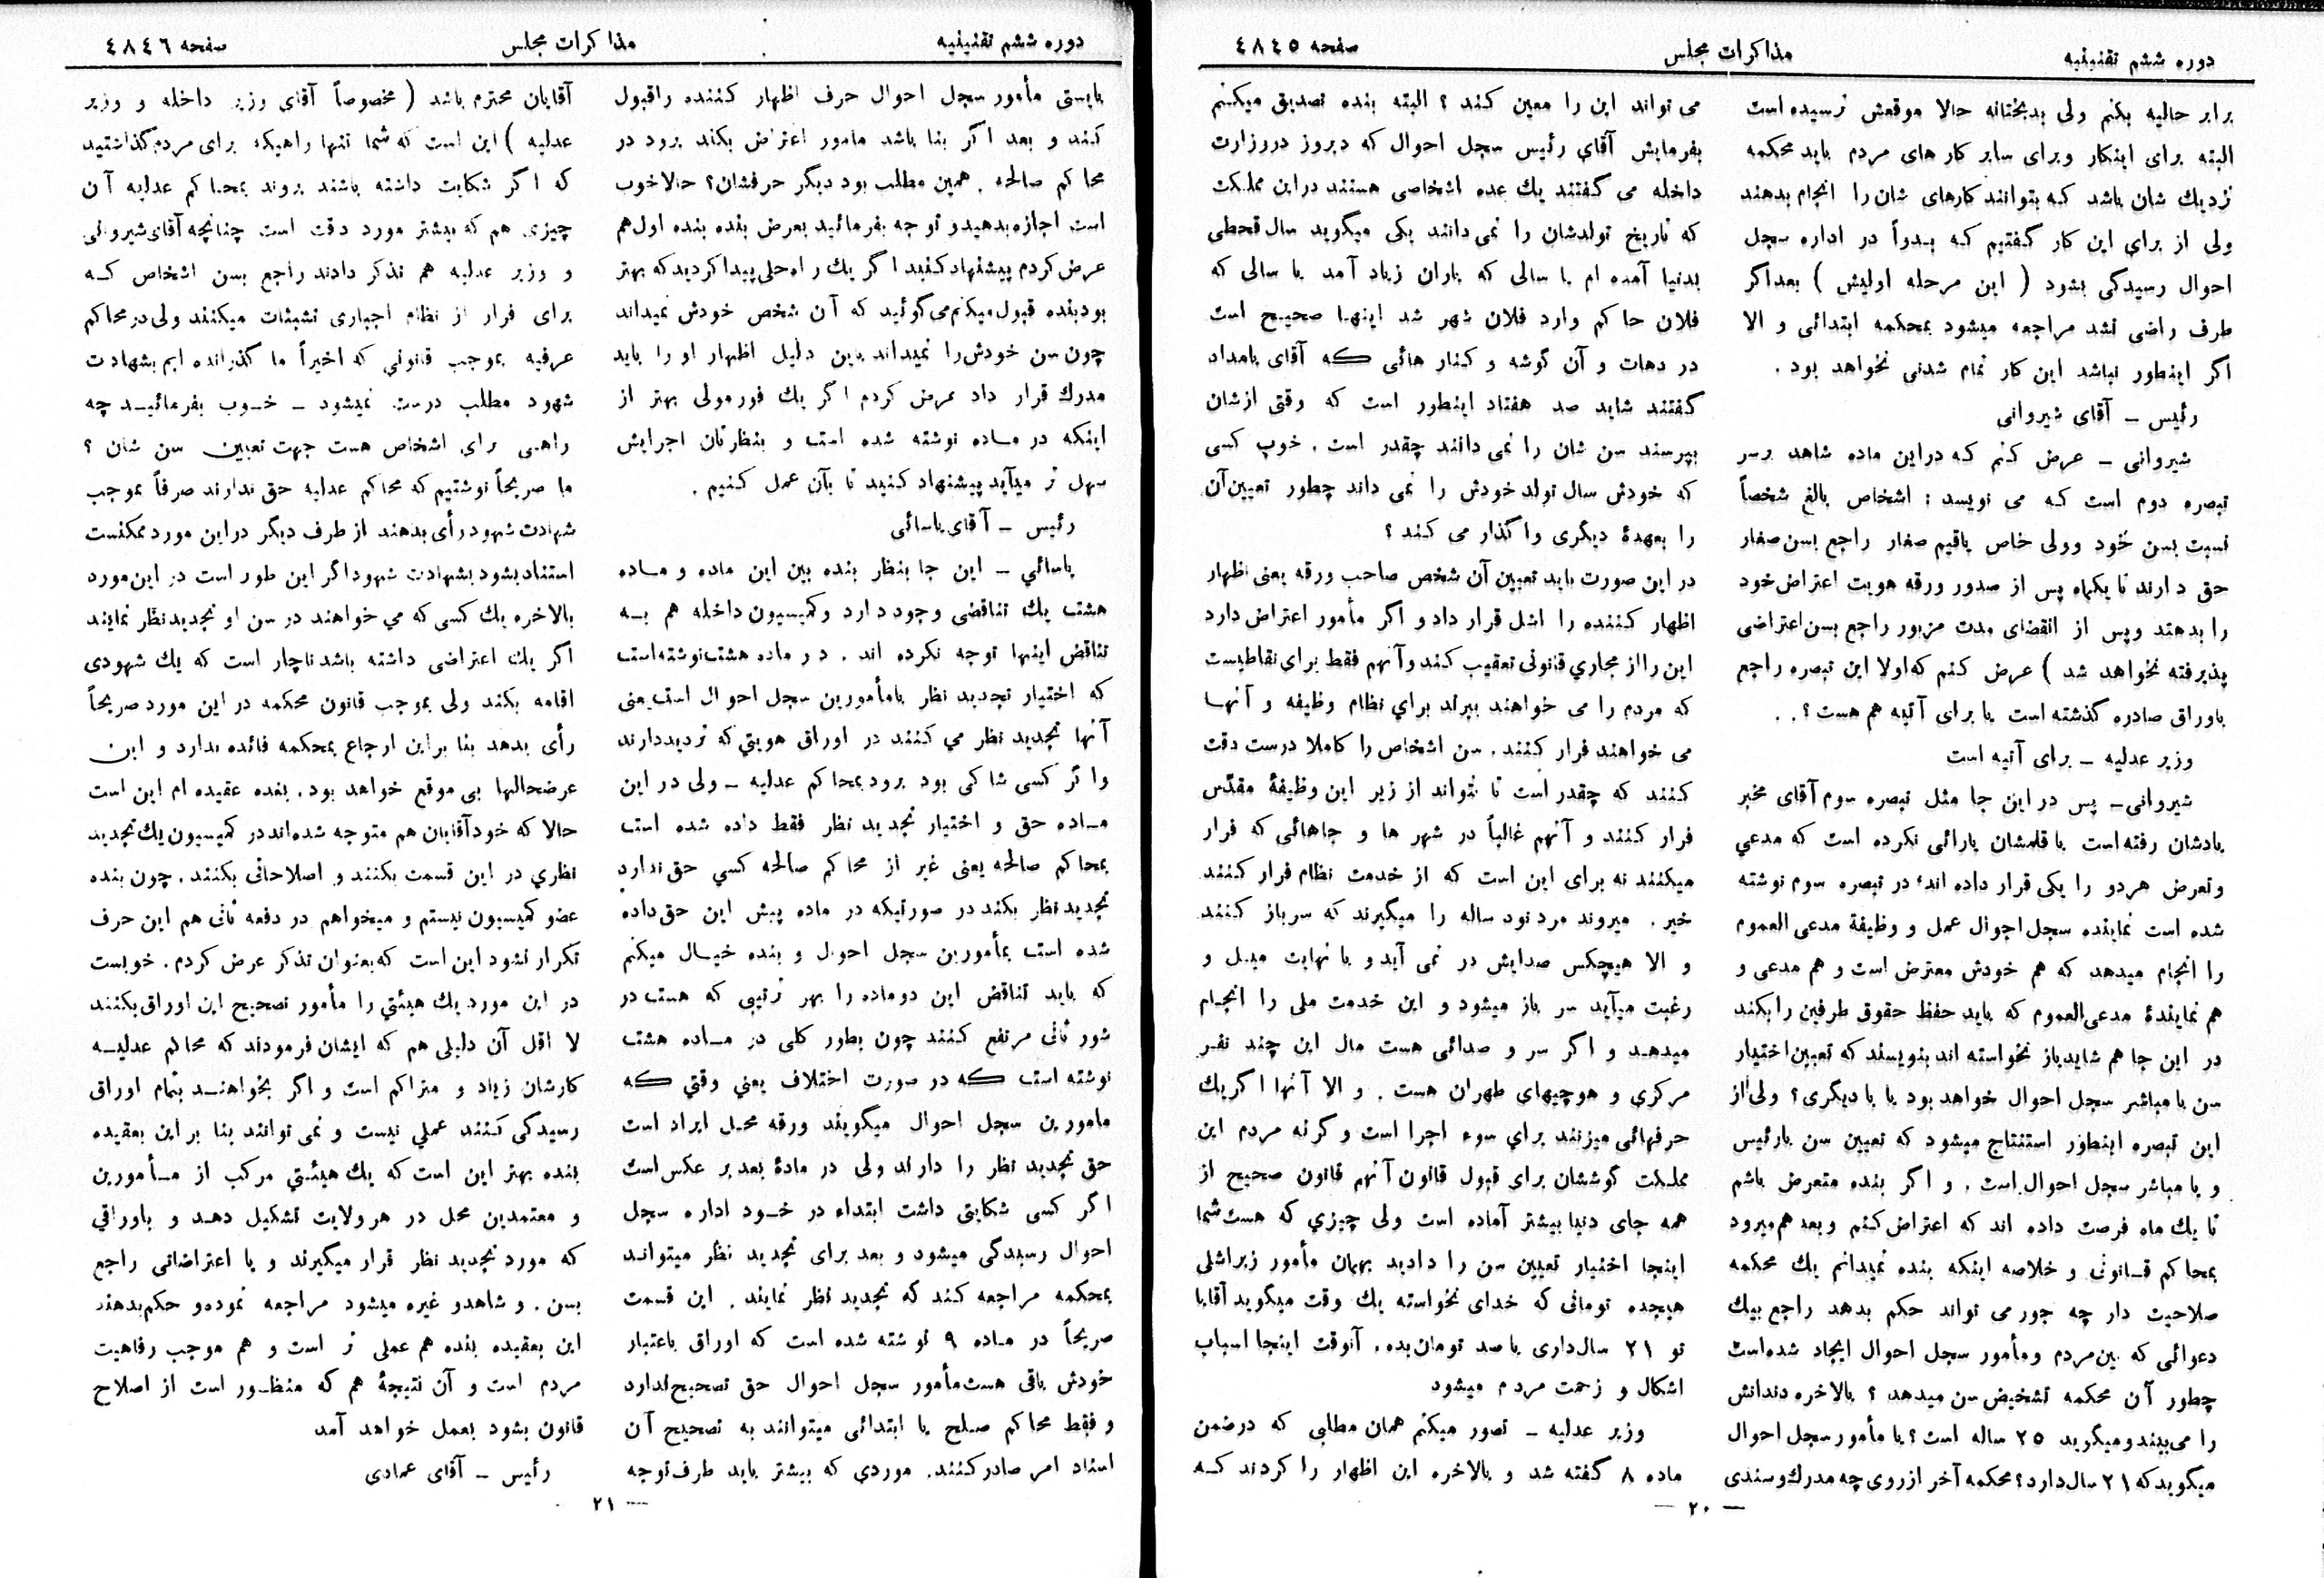 دوره ششم تقنینیه
مذاکرات مجلس
صفحه ٤٨٤٥
برابر حالیه بکنم ولی بدبختانه حالا موقعش نرسیده است
البته برای اینکار وبرای سایر کارهای مردم باید محکمه
نزدیك شان باشد که بتوانند کارهای شان را انجام بدهند
ولی از برای این کار گفتیم که بدواً در اداره سجل
احوال رسیدگی بشود ( این مرحله اولیش ) بعداگر
طرف راضی نشد مراجعه میشود بمحکمه ابتدائی و الا
اگر اینطور نباشد این کار تمام شدنی نخواهد بود .
رئیس – آقای شیروانی
شیروانی – عرض کنم که دراین ماده شاهد برسر
تبصره دوم است که می نویسد : اشخاص بالغ شخصاً
نسبت بسن خود وولی خاص یاقیم صغار راجع بسن صغار
حق دارند تا یکماه پس از صدور ورقه هویت اعتراض خود
را بدهند وپس از انقضای مدت مزبور راجع بسن اعتراضی
پذیرفته نخواهد شد ) عرض کنم که اولا این تبصره راجع
باوراق صادره گذشته است یا برای آتیه هم هست ؟ . .
وزیر عدلیه – برای آتیه است
شیروانی – پس در این جا مثل تبصره سوم آقای مخبر
یادشان رفته است یا قلمشان یارائی نکرده است که مدعي
وتعرض هردو را یکی قرار داده اند٬ در تبصره سوم نوشته
شده است نماینده سجل احوال عمل و وظیفة مدعی العموم
را انجام میدهد که هم خودش معترض است و هم مدعی و
هم نمایندهٔ مدعی العموم که باید حفظ حقوق طرفین را بکند
در این جا هم شاید باز نخواسته اند بنویسند که تعیین اختیار
سن با مباشر سجل احوال خواهد بود یا با دیگری ؟ ولی از
این تبصره اینطور استنتاج میشود که تعیین سن بارئیس
و یا مباشر سجل احوال است . و اگر بنده متعرض باشم
تا یك ماه فرصت داده اند که اعتراض کنم و بعد هم میرود
بمحاکم قانونی و خلاصه اینکه بنده نمیدانم یك محکمه
صلاحیت دار چه جور می تواند حکم بدهد راجع بیك
دعوائی که بین مردم ومأمور سجل احوال ایجاد شده است
چطور آن محکمه تشخیص سن میدهد ؟ بالاخره دندانش
را می بیند ومیگوید ٢٥ ساله است ؟ یا مأمور سجل احوال
میگوید که ٢١ سال دارد ؟ محکمه آخر از روی چه مدرك وسندی
می تواند این را معین کند ؟ البته بنده تصدیق میکنم
بفرمایش آقای رئیس سجل احوال که دیروز دروزارت
داخله می گفتند یك عده اشخاصی هستند دراین مملکت
که تاریخ تولدشان را نمی دانند یکی میگوید سال قحطی
بدنیا آمده ام یا سالی که باران زیاد آمد یا سالی که
فلان حاکم وارد فلان شهر شد اینها صحیح است
در دهات و آن گوشه و کنار هائی که آقای بامداد
گفتند شاید صد هفتاد اینطور است که وقتی ازشان
بپرسند سن شان را نمی دانند چقدر است . خوب کسی
که خودش سال تولد خودش را نمی داند چطور تعیین آن
را بعهدهٔ دیگری واگذار می کند ؟
در این صورت باید تعیین آن شخص صاحب ورقه یعنی اظهار
اظهار کننده را اشل قرار داد و اگر مأمور اعتراض دارد
این را از مجاري قانونی تعقیب کند وآنهم فقط برای نقاطیست
که مردم را می خواهند ببرند براي نظام وظیفه و آنها
می خواهند فرار کنند . سن اشخاص را کاملا درست دقت
کنند که چقدر است تا نتواند از زیر این وظیفهٔ مقدّس
فرار کنند و آنهم غالباً در شهر ها و جاهائی که فرار
میکنند نه برای این است که از خدمت نظام فرار کنند
خیر . میروند مرد نود ساله را میگیرند که سرباز کنند
و الا هیچکس صدایش در نمی آید و با نهایت میل و
رغبت میآید سر باز میشود و این خدمت ملی را انجام
میدهد و اگر سر و صدائی هست مال این چند نفر
مرکزی و هوچیهای طهران هست . و الا آنها اگریك
حرفهائی میزنند براي سوء اجرا است و گرنه مردم این
مملکت گوششان برای قبول قانون آنهم قانون صحیح از
همه جای دنیا بیشتر آماده است ولی چیزي که هست شما
اینجا اختیار تعیین سن را دادید بهمان مأمور زیراشلی
هیجده تومانی که خدای نخواسته یك وقت میگوید آقابا
تو ٢١ سال داری یا صد تومان بده، آنوقت اینجا اسباب
اشکال و زحمت مردم میشود
وزیر عدلیه – تصور میکنم همان مطلبی که درضمن
ماده ٨ گفته شد و بالاخره این اظهار را کردند که
— ٢٠ —
دوره ششم تقنینیه
مذاکرات مجلس
صفحه ٤٨٤٦
بایستی مأمور سجل احوال حرف اظهار کننده راقبول
کند و بعد اگر بنا باشد مامور اعتراض بکند برود در
محاکم صالحه . همین مطلب بود دیگر حرفشان؟ حالا خوب
است اجازه بدهید و توجه بفرمائید بعرض بنده بنده اول هم
عرض کردم پیشنهاد کنید اگر یك راه حلی پیدا کردید که بهتر
بود بنده قبول میکنم می گوئید که آن شخص خودش نمیداند
چون سن خودش را نمیداند باین دلیل اظهار او را باید
مدرك قرار داد عرض کردم اگر یك فورمولی بهتر از
اینکه در ماده نوشته شده است و بنظرتان اجرایش
سهل تر میآید پیشنهاد کنید تا بآن عمل کنیم .
رئیس – آقای یاسائی
یاسائي – این جا بنظر بنده بین این ماده و ماده
هشت یك تناقضی وجود دارد وکمیسیون داخله هم به
تناقض اینها توجه نکرده اند . در ماده هشت نوشته است
که اختیار تجدید نظر بامأمورین سجل احوال است یعنی
آنها تجدید نظر می کنند در اوراق هویتي که تردید دارند
واگر کسی شاکی بود برود بمحاکم عدلیه – ولی در این
ماده حق و اختیار تجدید نظر فقط داده شده است
بمحاکم صالحه یعنی غیر از محاکم صالحه کسي حق ندارد
تجدید نظر بکند در صورتیکه در ماده پیش این حق داده
شده است بمأمورین سجل احوال و بنده خیال میکنم
که باید تناقض این دو ماده را بهر ترتیبی که هست در
شور ثانی مرتفع کنند چون بطور کلی در ماده هشت
نوشته است که در صورت اختلاف یعني وقتي که
مامورین سجل احوال میگویند ورقه محل ایراد است
حق تجدید نظر را دارند ولی در مادهٔ بعد بر عکس است
اگر کسی شکایتی داشت ابتداء در خود اداره سجل
احوال رسیدگی میشود و بعد برای تجدید نظر میتواند
بمحکمه مراجعه کند که تجدید نظر نمایند . این قسمت
صریحاً در ماده ٩ نوشته شده است که اوراق باعتبار
خودش باقی هست مأمور سجل احوال حق تصحیح ندارد
و فقط محاکم صلح یا ابتدائی میتوانند به تصحیح آن
اسناد امر صادر کنند. موردی که بیشتر باید طرف توجه
آقایان محترم باشد ( مخصوصاً آقای وزیر داخله و وزیر
عدلیه ) این است که شما تنها راهیکه برای مردم گذاشتید
که اگر شکایت داشته باشند بروند بمحاکم عدلیه آن
چیزی هم که بیشتر مورد دقت است چنانچه آقای شیروانی
و وزیر عدلیه هم تذکر دادند راجع بسن اشخاص که
برای فرار از نظام اجباری تشبثات میکنند ولی در محاکم
عرفیه بموجب قانوني که اخیراً ما گذرانده ایم بشهادت
شهود مطلب درست نمیشود – خوب بفرمائید چه
راهی برای اشخاص هست جهت تعیین سن شان ؟
ما صریحاً نوشتیم که محاکم عدلیه حق ندارند صرفاً بموجب
شهادت شهود رأی بدهند از طرف دیگر دراین مورد ممکنست
استناد بشود بشهادت شهود اگر این طور است در این مورد
بالاخره یك کسی که می خواهند در سن او تجدید نظر نمایند
اگر یك اعتراضی داشته باشد ناچار است که یك شهودی
اقامه بکند ولی بموجب قانون محکمه در این مورد صریحاً
رأی بدهد بنا براین ارجاع بمحکمه فائده ندارد و این
عرضحالها بی موقع خواهد بود. بنده عقیده ام این است
حالا که خود آقایان هم متوجه شده اند در کمیسیون یك تجدید
نظري در این قسمت بکنند و اصلاحاتی بکنند . چون بنده
عضو کمیسیون نیستم و میخواهم در دفعه ثانی هم این حرف
تکرار نشود این است که بعنوان تذکر عرض کردم . خوبست
در این مورد یك هیئتي را مأمور تصحیح این اوراق بکنند
لا اقل آن دلیلی هم که ایشان فرمودند که محاکم عدلیه
کارشان زیاد و متراکم است و اگر بخواهند بتمام اوراق
رسیدگی کنند عملي نیست و نمی توانند بنا براین بعقیده
بنده بهتر این است که یك هیئتي مرکب از مأمورین
و معتمدین محل در هر ولایت تشکیل دهد و باوراقي
که مورد تجدید نظر قرار میگیرند و یا اعتراضاتی راجع
بسن . و شاهدو غیره میشود مراجعه نموده و حکم بدهند
این بعقیده بنده هم عملی تر است و هم موجب رفاهیت
مردم است و آن نتیجهٔ هم که منظور است از اصلاح
قانون بشود بعمل خواهد آمد
رئیس – آقای عمادی
— ٢١ —